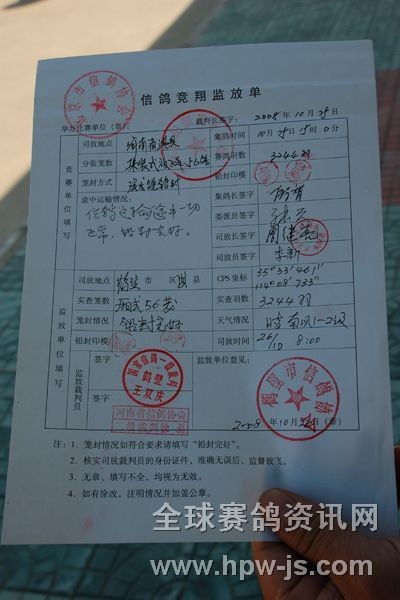 信鸽竞翔监放单
举办比赛单位（章）： 裁判长签字： 2008年10月25日
竞赛单位填写
司放地点 河南 集鸽时间 10月25日15时0分
分装笼数 集装式放飞车56笼 赛鸽羽数 3244羽
笼封方式 铅封 铅封印模
途中运输情况： 集鸽长签字
信鸽运输途中一切正常，铅封完好。 委派员签字
司放长签字
司放员签字 李新
监放单位填写
司放地点 鹤壁市 区淇县 GPS坐标 35°33′461″ 114°08′733″
实查笼数 厢式56笼 实查羽数 3244羽
笼封情况 铅封完好 天气情况 晴 南风1-2级
铅封印模 司放时间 26/10 8:00
监放裁判员
签字 监放单位意见：
签字
国家信鸽一级裁判
鹤壁
王双庆
河南省信鸽协会
二级裁判
北京市信鸽协会
鹤壁市信鸽协会
2008年10月26日（章）
注：1．笼封情况如符合要求请填写“铅封完好”。
2．核实司放裁判员的身份证件，准确无误后，监督放飞。
3．无章、填写不全，均视为无效。
4．如有涂改，注明情况并加盖公章。
全球赛鸽资讯网
www.hpw-js.com